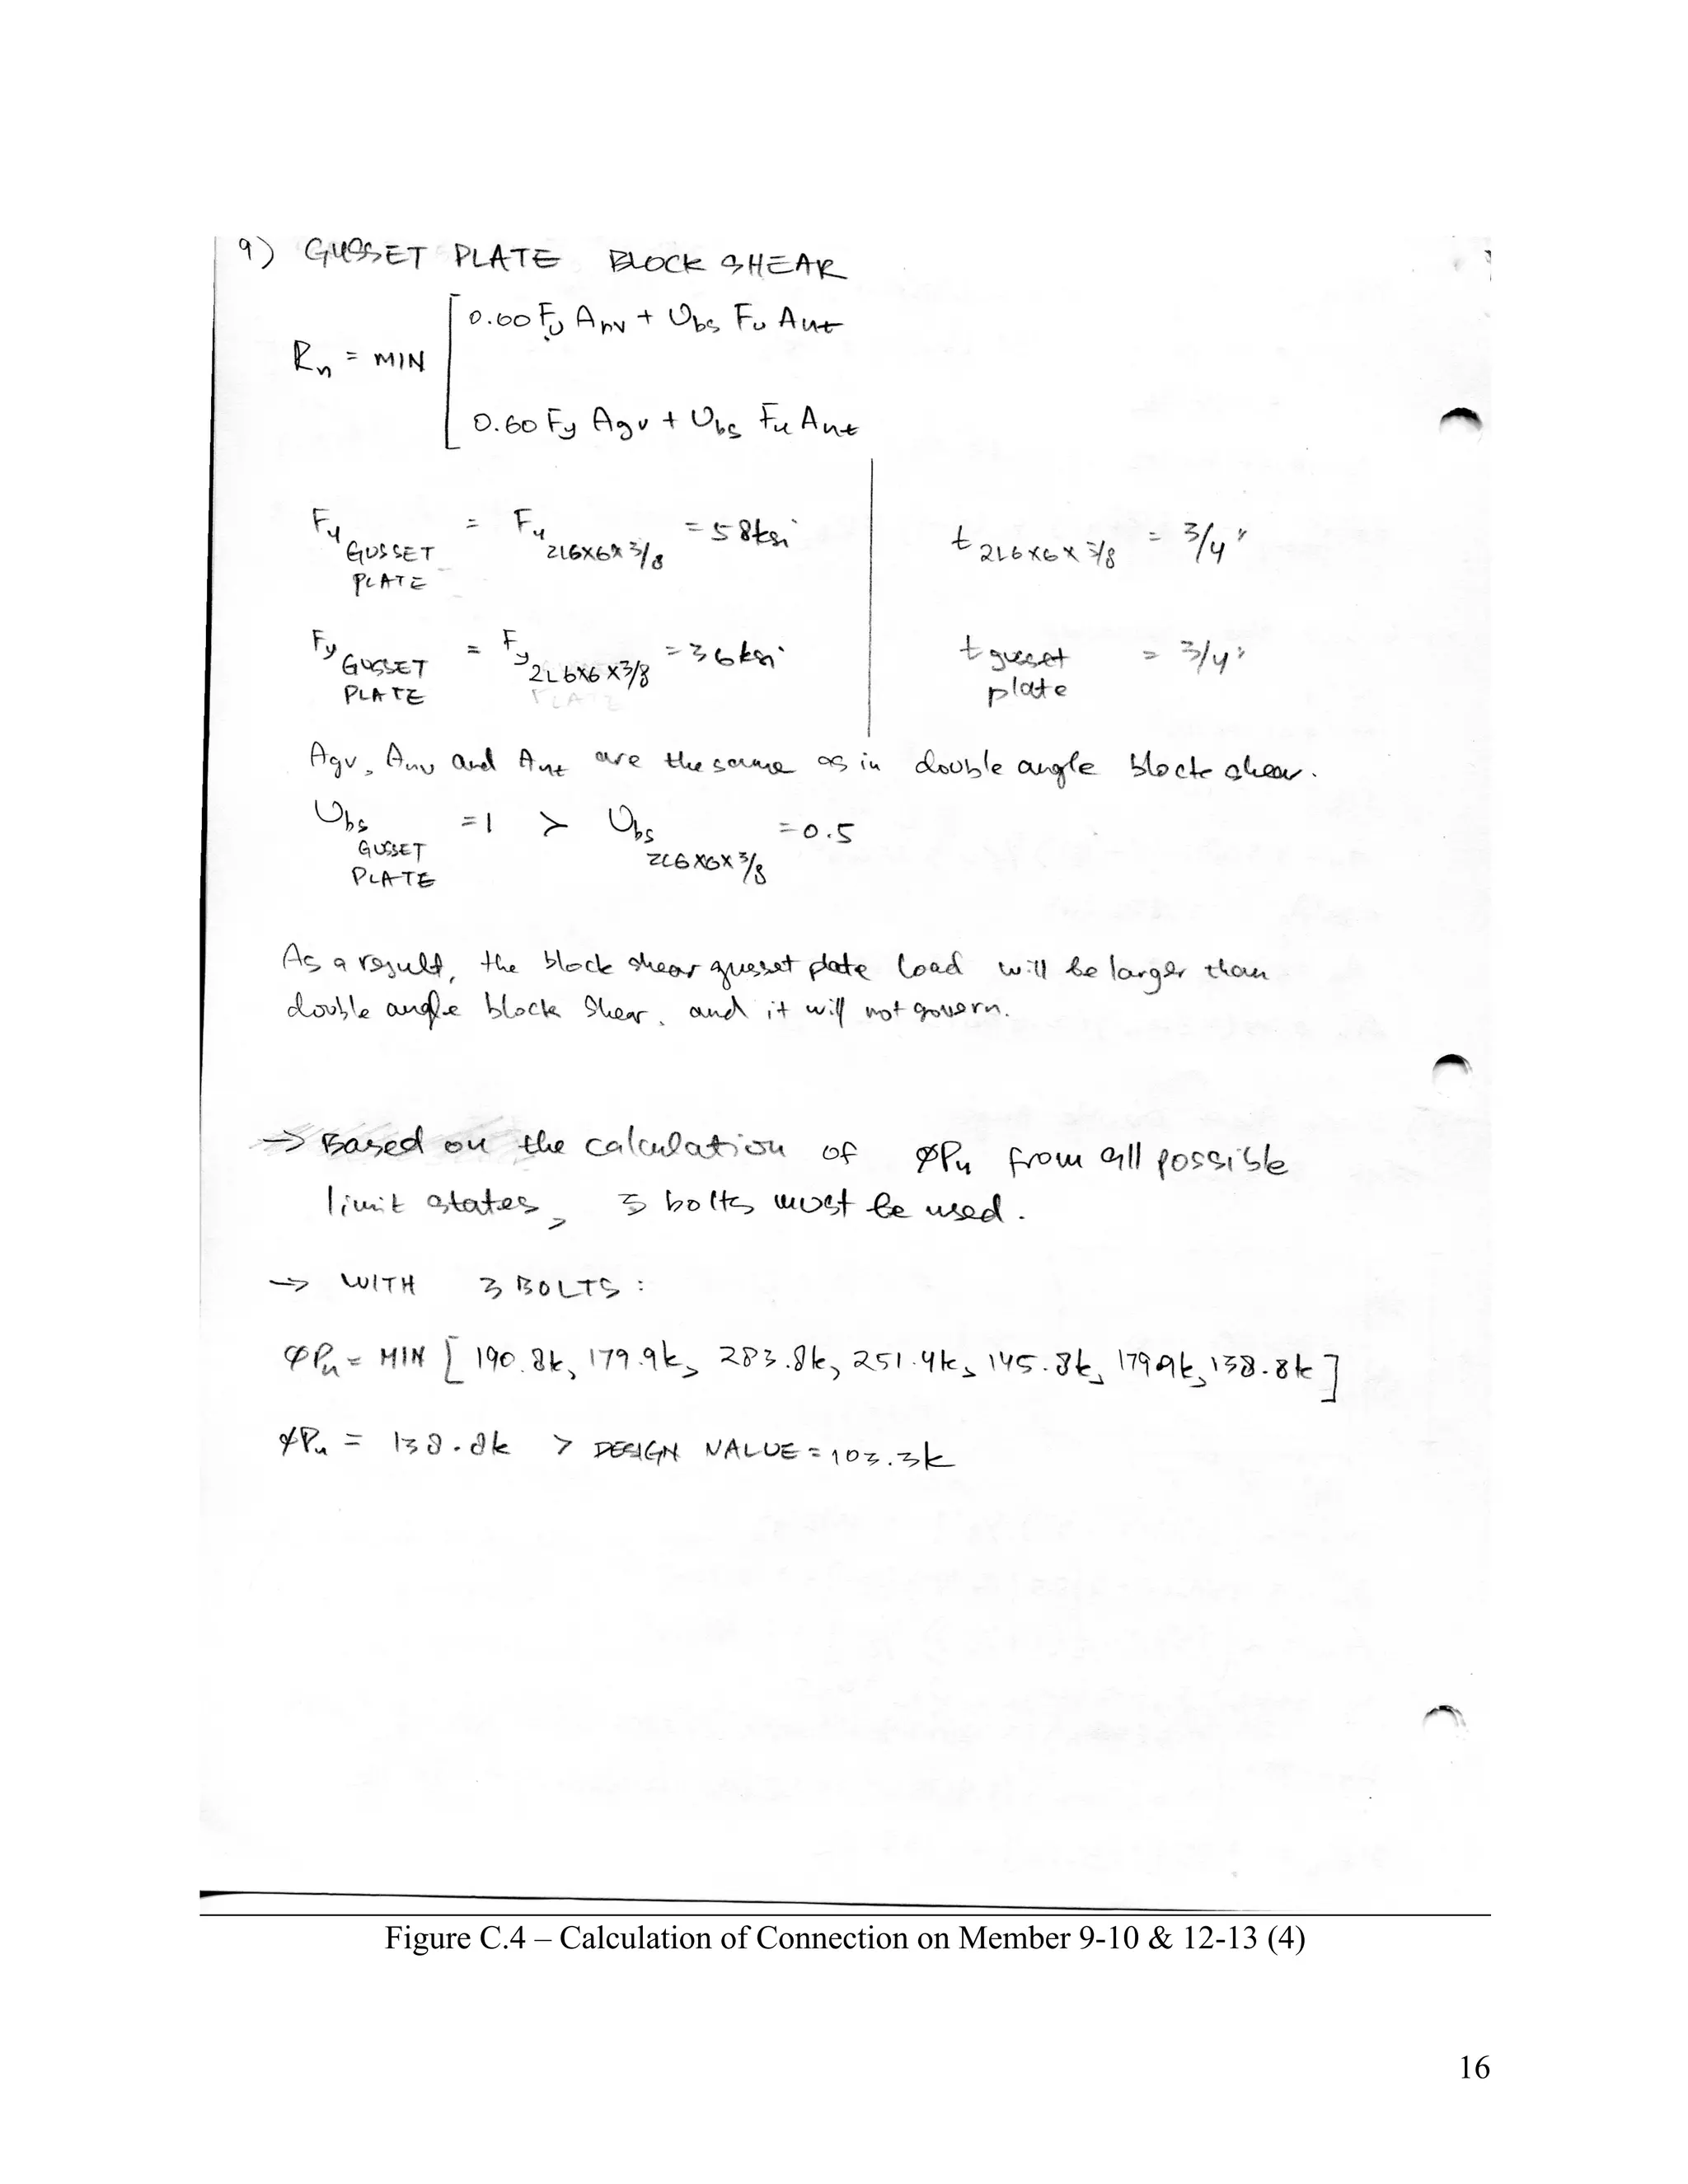 9) GUSSET PLATE BLOCK SHEAR
Rn = MIN [ 0.60 Fu Anv + Ubs Fu Ant
0.60 Fy Agv + Ubs Fu Ant
Fu GUSSET PLATE = Fu 2L6x6x3/8 = 58ksi
t 2L6x6x3/8 = 3/4"
Fy GUSSET PLATE = Fy 2L6x6x3/8 = 36ksi
t gusset plate = 3/4"
Agv, Anv and Ant are the same as in double angle block shear.
Ubs GUSSET PLATE = 1 > Ubs 2L6x6x3/8 = 0.5
As a result, the block shear gusset plate load will be larger than
double angle block shear, and it will not govern.
→ Based on the calculation of ØPn from all possible
limit states, 3 bolts must be used.
→ WITH 3 BOLTS:
ØPn = MIN [190.8k, 179.9k, 283.8k, 251.4k, 145.8k, 179.9k, 138.8k]
ØPn = 138.8k > DESIGN VALUE = 103.3k
Figure C.4 – Calculation of Connection on Member 9-10 & 12-13 (4)
16